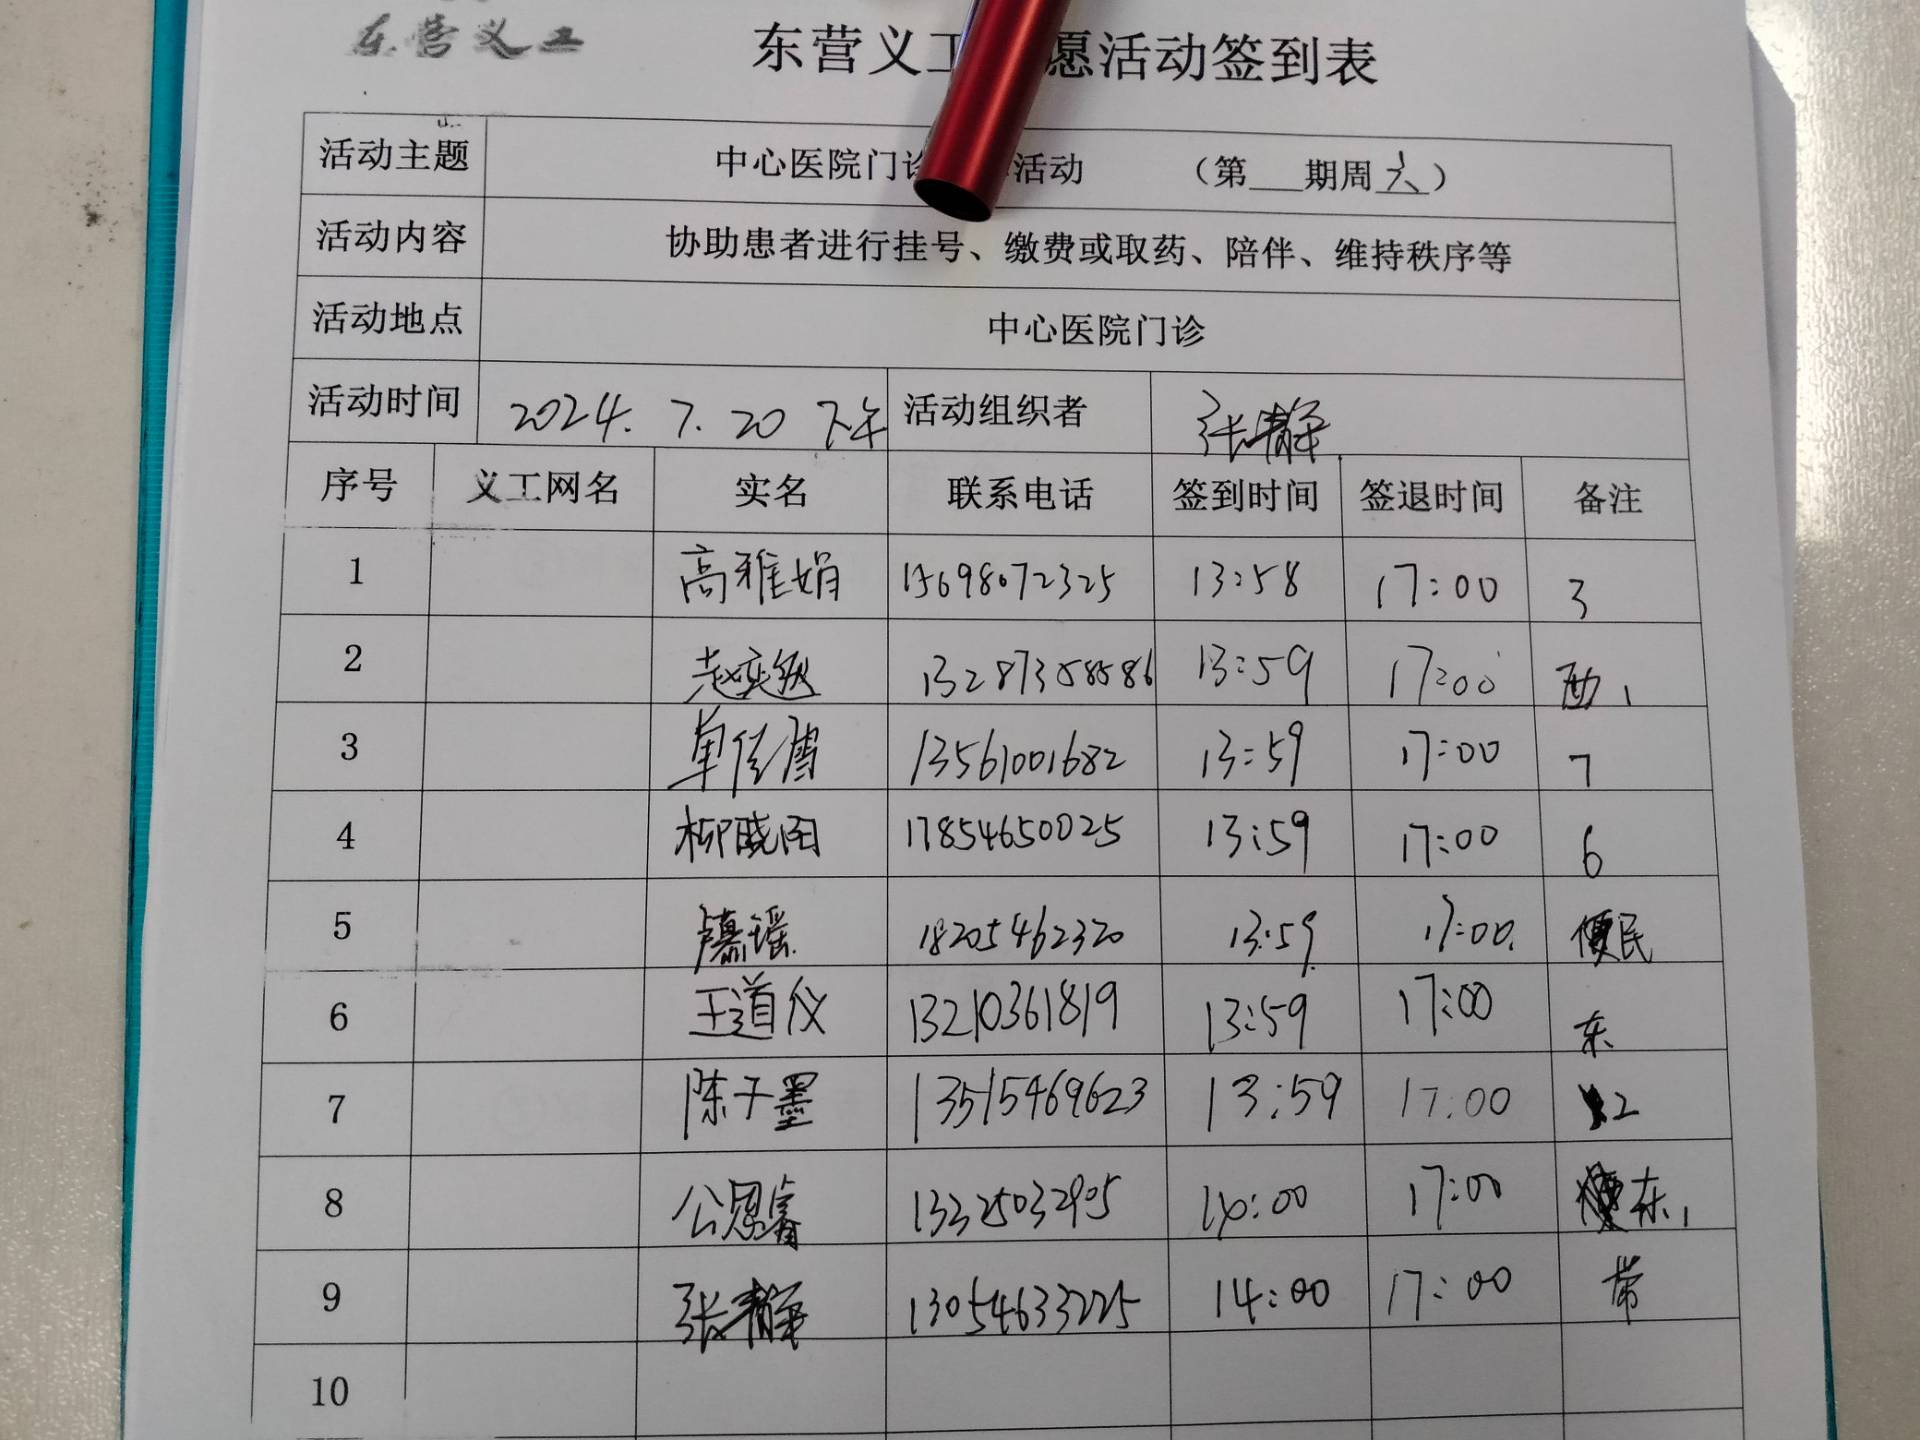 东营义工
东营义工 愿活动签到表
活动主题 中心医院门诊 活动 （第___期周六）
活动内容 协助患者进行挂号、缴费或取药、陪伴、维持秩序等
活动地点 中心医院门诊
活动时间 2024.7.20 下午 活动组织者 张静
序号 义工网名 实名 联系电话 签到时间 签退时间 备注
1 高雅娟 15698072325 13:58 17:00 3
2 13287358586 13:59 17:00 西1
3 单佳雪 13561001682 13:59 17:00 7
4 柳晓雨 17854650025 13:59 17:00 6
5 瑶 18205462320 13:59 17:00 便民
6 王道仪 13210361819 13:59 17:00 东
7 陈子墨 13515469623 13:59 17:00 2
8 公恩睿 13325032905 14:00 17:00 东1
9 张静 13054633225 14:00 17:00 带
10